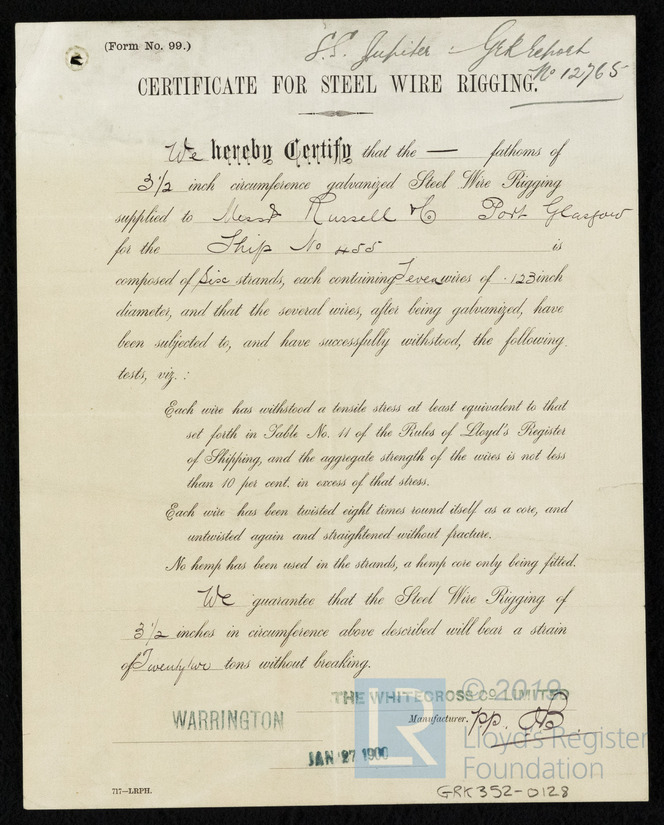 (Form No. 99.)
S.S. Jupiter : GRK Report
No 12765
CERTIFICATE FOR STEEL WIRE RIGGING.
We hereby Certify that the — fathoms of
3 1/2 inch circumference galvanized Steel Wire Rigging
supplied to Messrs Russell & Co Port Glasgow
for the Ship No 455 is
composed of Six strands, each containing Seven wires of .123 inch
diameter, and that the several wires, after being galvanized, have
been subjected to, and have successfully withstood, the following
tests, viz. :
Each wire has withstood a tensile stress at least equivalent to that
set forth in Table No. 11 of the Rules of Lloyd's Register
of Shipping, and the aggregate strength of the wires is not less
than 10 per cent. in excess of that stress.
Each wire has been twisted eight times round itself as a core, and
untwisted again and straightened without fracture.
No hemp has been used in the strands, a hemp core only being fitted.
We guarantee that the Steel Wire Rigging of
3 1/2 inches in circumference above described will bear a strain
of Twentytwo tons without breaking.
THE WHITECROSS CO. LIMITED
© 2019
WARRINGTON
Manufacturer. pp.
JAN 27 1900
LR
Lloyd's Register
Foundation
717—LRPH.
GRK352-0128